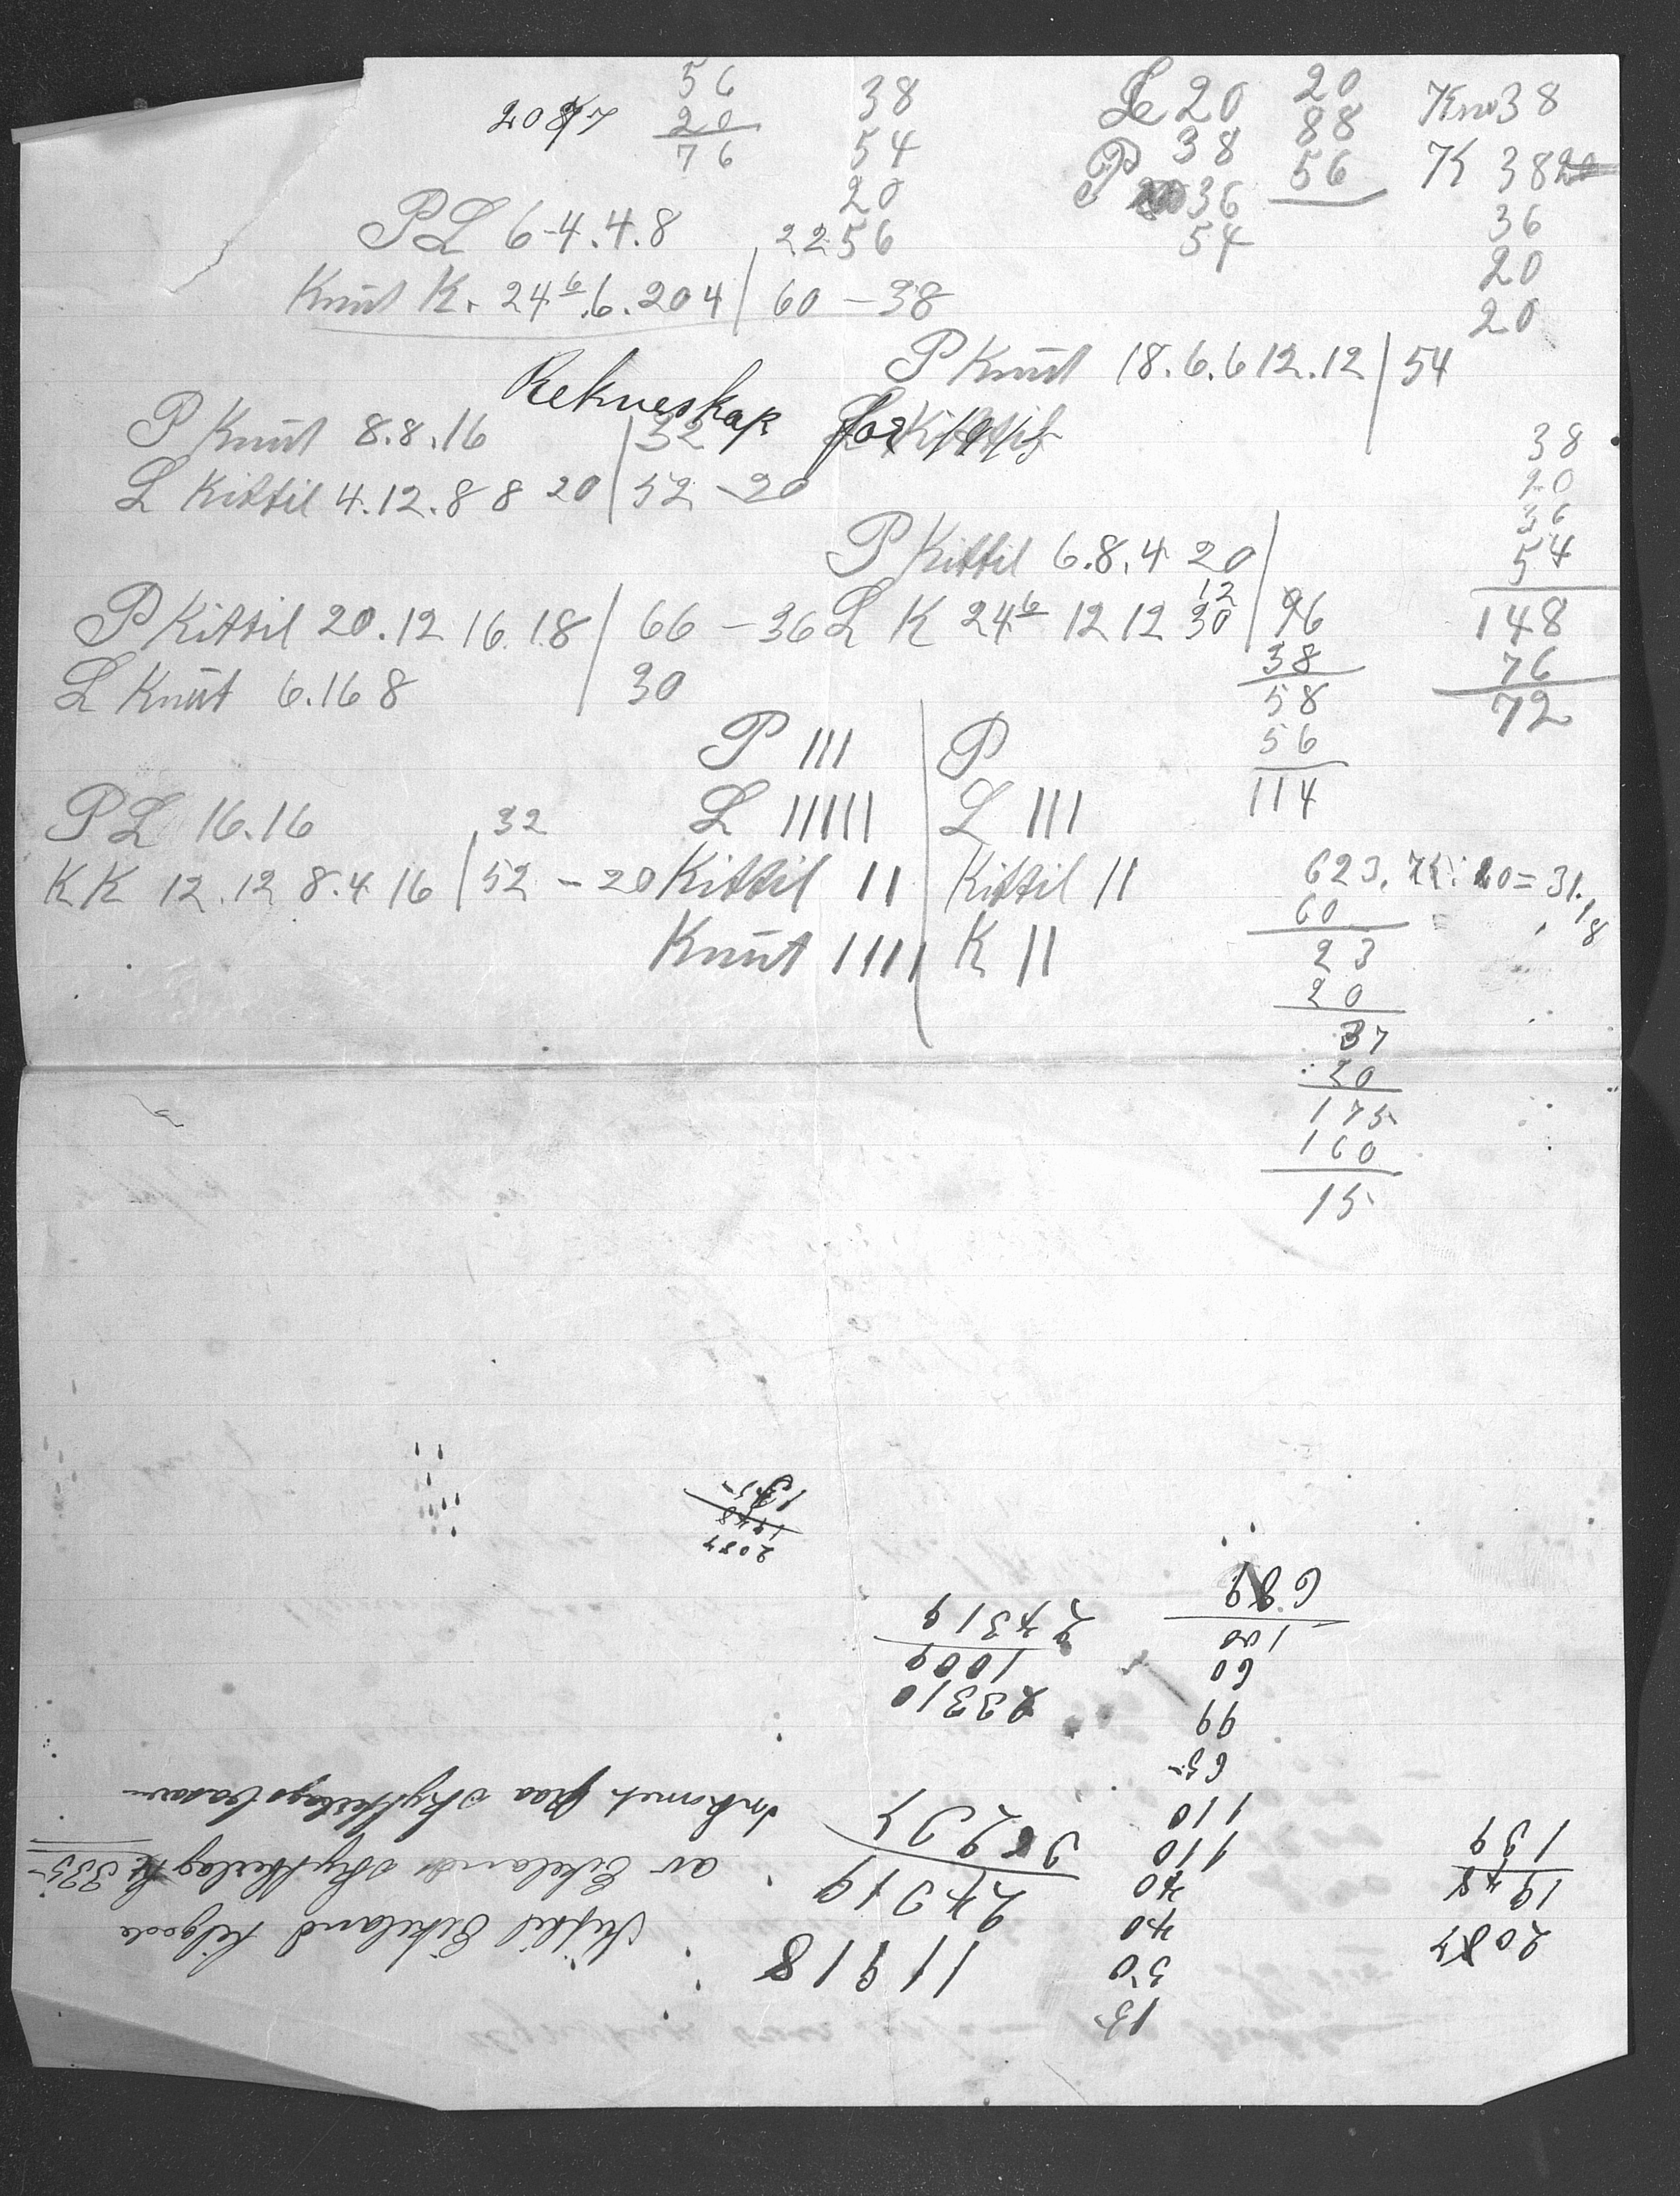 56
20
76
38
54
20
56
Le 20
38
P 36
54
20
88
56
Knu 38
K 38 20
36
20
20
PL 6-4.4.8 | 22
Knut K. 24 6.6.204 | 60 - 38
P Knut 18.6.6 12.12 | 54
Rekneskap for
P Knut 8.8.16 | 32
L Kittil 4.12.8 8 20 | 52 - 20
38
20
36
54
148
76
72
P Kittil 6.8.4 20 |
L K 24 6 12 12 30 | 96
12
38
58
56
114
P Kittil 20.12 16.18 | 66 - 36
L Knut 6.16 8 | 30
P III | P
L IIIII | L III
Kittil II | Kittil II
Knut IIII | K II
PL 16.16 | 32
KK 12.12 8.4 16 | 52 - 20
623.75: 20 = 31.18
60
23
20
37
20
175
160
15
15
50
40
40
110
110
65
99
60
100
689
2087
1948
139
11918
24319
Kittil Eikeland tilgode
av Eikelands skyttarlag kr 335-
Inkomet paa skyttarlagsbasar
23310
1009
24319
2087
1948